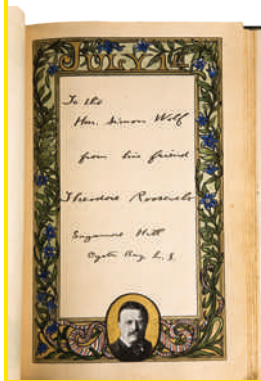 JULY 14
To the
Hon. Simon Wolf
from his friend
Theodore Roosevelt
Sagamore Hill
Oyster Bay L. I.